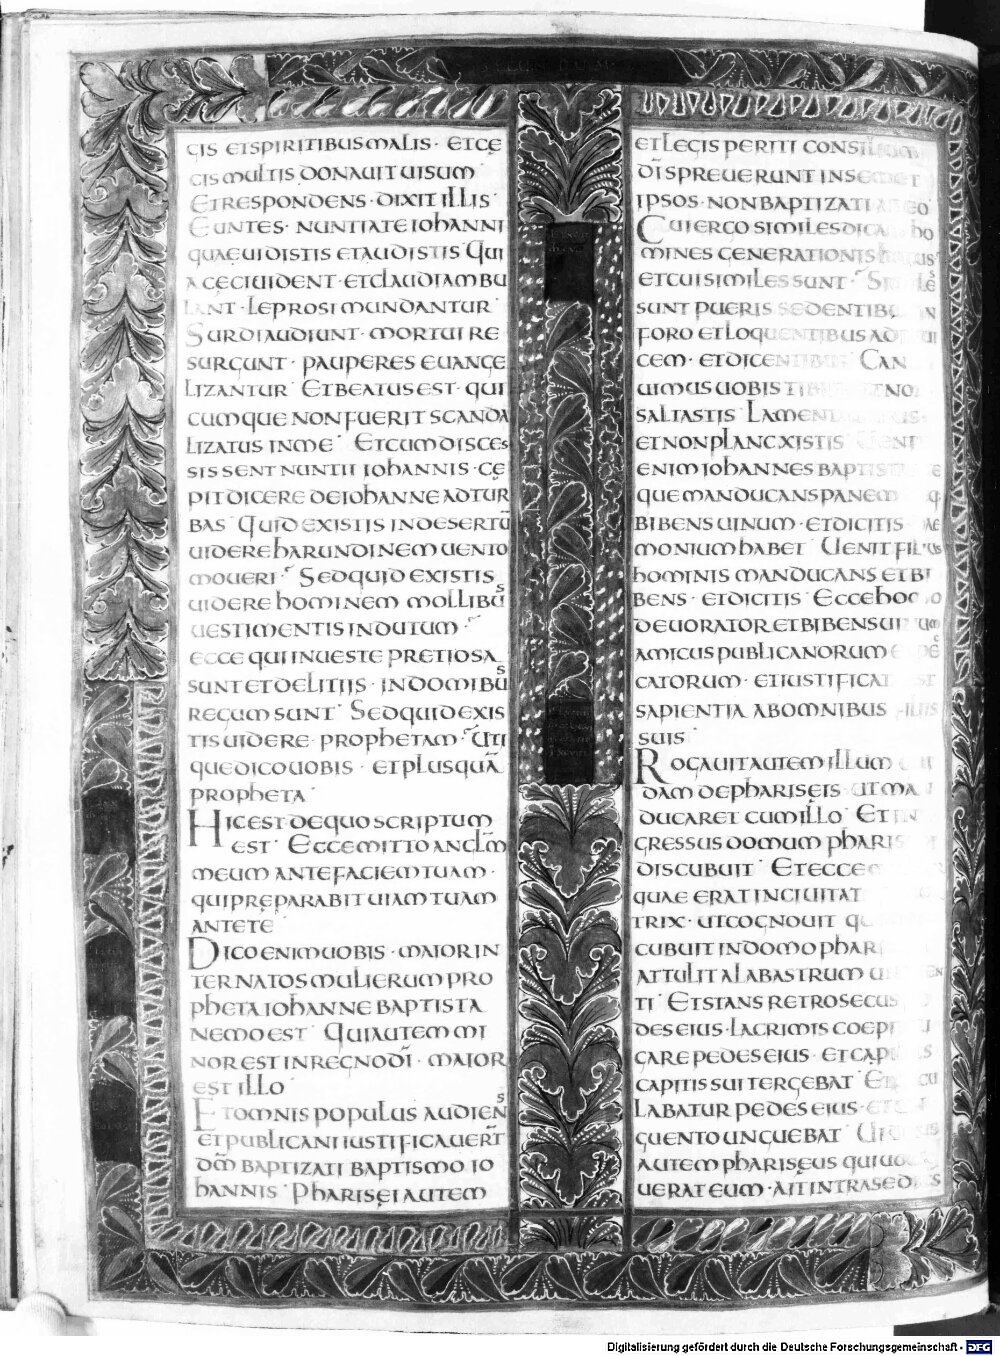 SECUNDUM
gis et spiritibus malis · et cę
cis multis donavit visum
Et respondens · dixit illis
Euntes · nuntiate iohanni
quae vidistis et audistis Qui
a ceci vident · et claudi ambu
lant · leprosi mundantur
Surdi audiunt · mortui re
surgunt · pauperes evange
lizantur Et beatus est · qui
cumque non fuerit scanda
lizatus in me Et cum disces
sissent nuntii iohannis · cę
pit dicere de iohanne ad tur
bas Quid existis in desertū
videre harundinem vento
moveri Sed quid existis
videre hominem mollibus
vestimentis indutum
ecce qui in veste pretiosa
sunt et delitiis · in domibus
regum sunt Sed quid exis
tis videre · prophetam · Uti
que dico vobis · et plus quā
propheta
Hic est de quo scriptum
est Ecce mitto anglm
meum ante faciem tuam ·
qui pręparabit viam tuam
ante te
Dico enim vobis · maior in
ter natos mulierum pro
pheta iohanne baptista
nemo est Qui autem mi
nor est in regno dī · maior
est illo
Et omnis populus audiens
et publicani iustificaverт
dm̄ baptizati baptismo io
hannis Pharisęi autem
et legis periti consilium
dī spreverunt in semet
ipsos · non baptizati ab eo
Cui ergo similes dicam ho
mines generationis huius
et cui similes sunt · Similes
sunt pueris sedentibus in
foro et loquentibus ad
cem · et dicentibus Can
uimus vobis tibiis et non
saltastis Lamen
et non planxistis Venit
enim iohannes baptista ne
que manducans panem neq
bibens vinum · et dicitis dae
monium habet Venit filius
hominis manducans et bi
bens · et dicitis Ecce homo
devorator et bibens vinum
amicus publicanorum et pec
catorum · et iustificata est
sapientia ab omnibus filiis
suis
Rogavit autem illum
dam de pharisęis · ut man
ducaret cum illo Et in
gressus domum pharisęi
discubuit Et ecce
quae erat in civitate
trix · ut cognovit quod
cubuit in domo phari
attulit alabastrum unguen
ti Et stans retro secus
des eius · lacrimis coepit ri
gare pedes eius · et capillis
capitis sui tergebat Et oscu
labatur pedes eius · et un
guento unguebat Videns
autem pharisęus qui voca
verat eum · ait intra se dicens
Digitalisierung gefördert durch die Deutsche Forschungsgemeinschaft - DFG